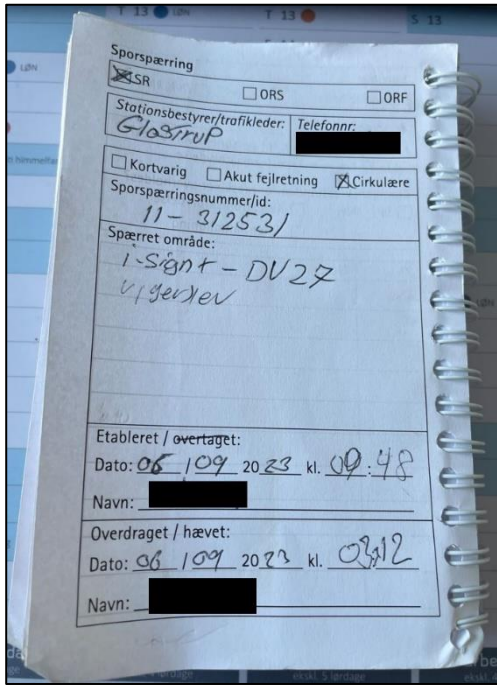 T 13
T 13
S 13
LØN
Sporspærring
SR ORS ORF
Stationsbestyrer/trafikleder: Telefonnr:
Glostrup
Kortvarig Akut fejlretning Cirkulære
Sporspærringsnummer/id:
11-312531
Spærret område:
i-Signt - DV27
Vigerslev
Etableret / overtaget:
Dato: 06 / 09 2023 kl. 09:48
Navn:
Overdraget / hævet:
Dato: 06 / 09 2023 kl.
Navn:
ekskl. 5 lørdage